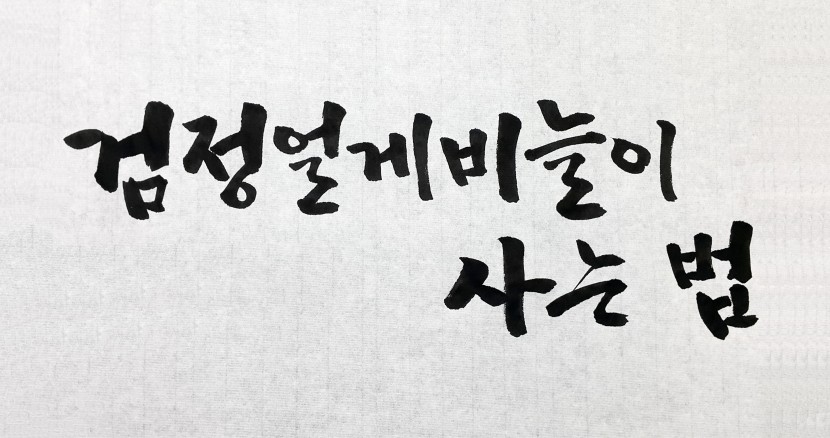 검정얼게비늘이
사는 범